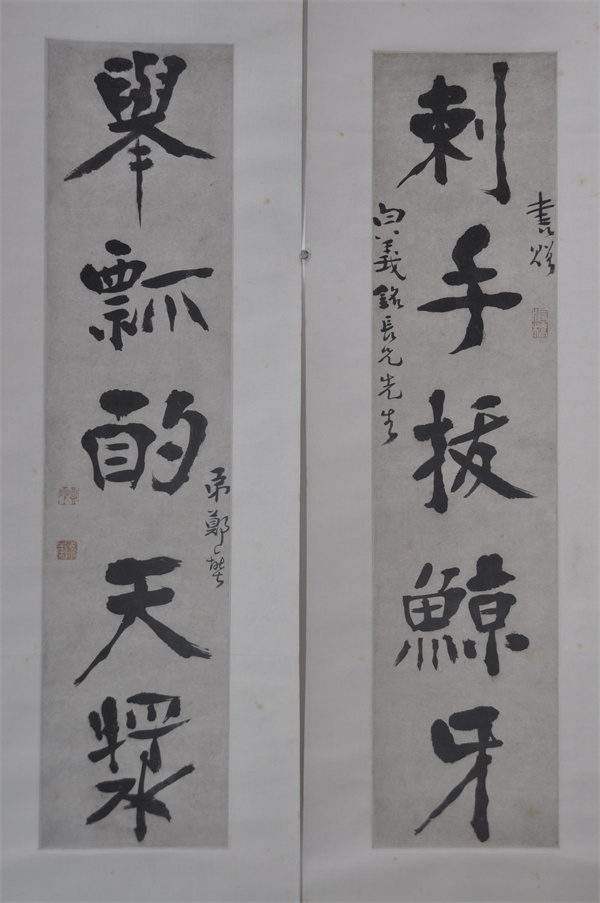 書
刺手拔鯨牙
義銘長兄先生
舉瓢酌天漿
弟鄭